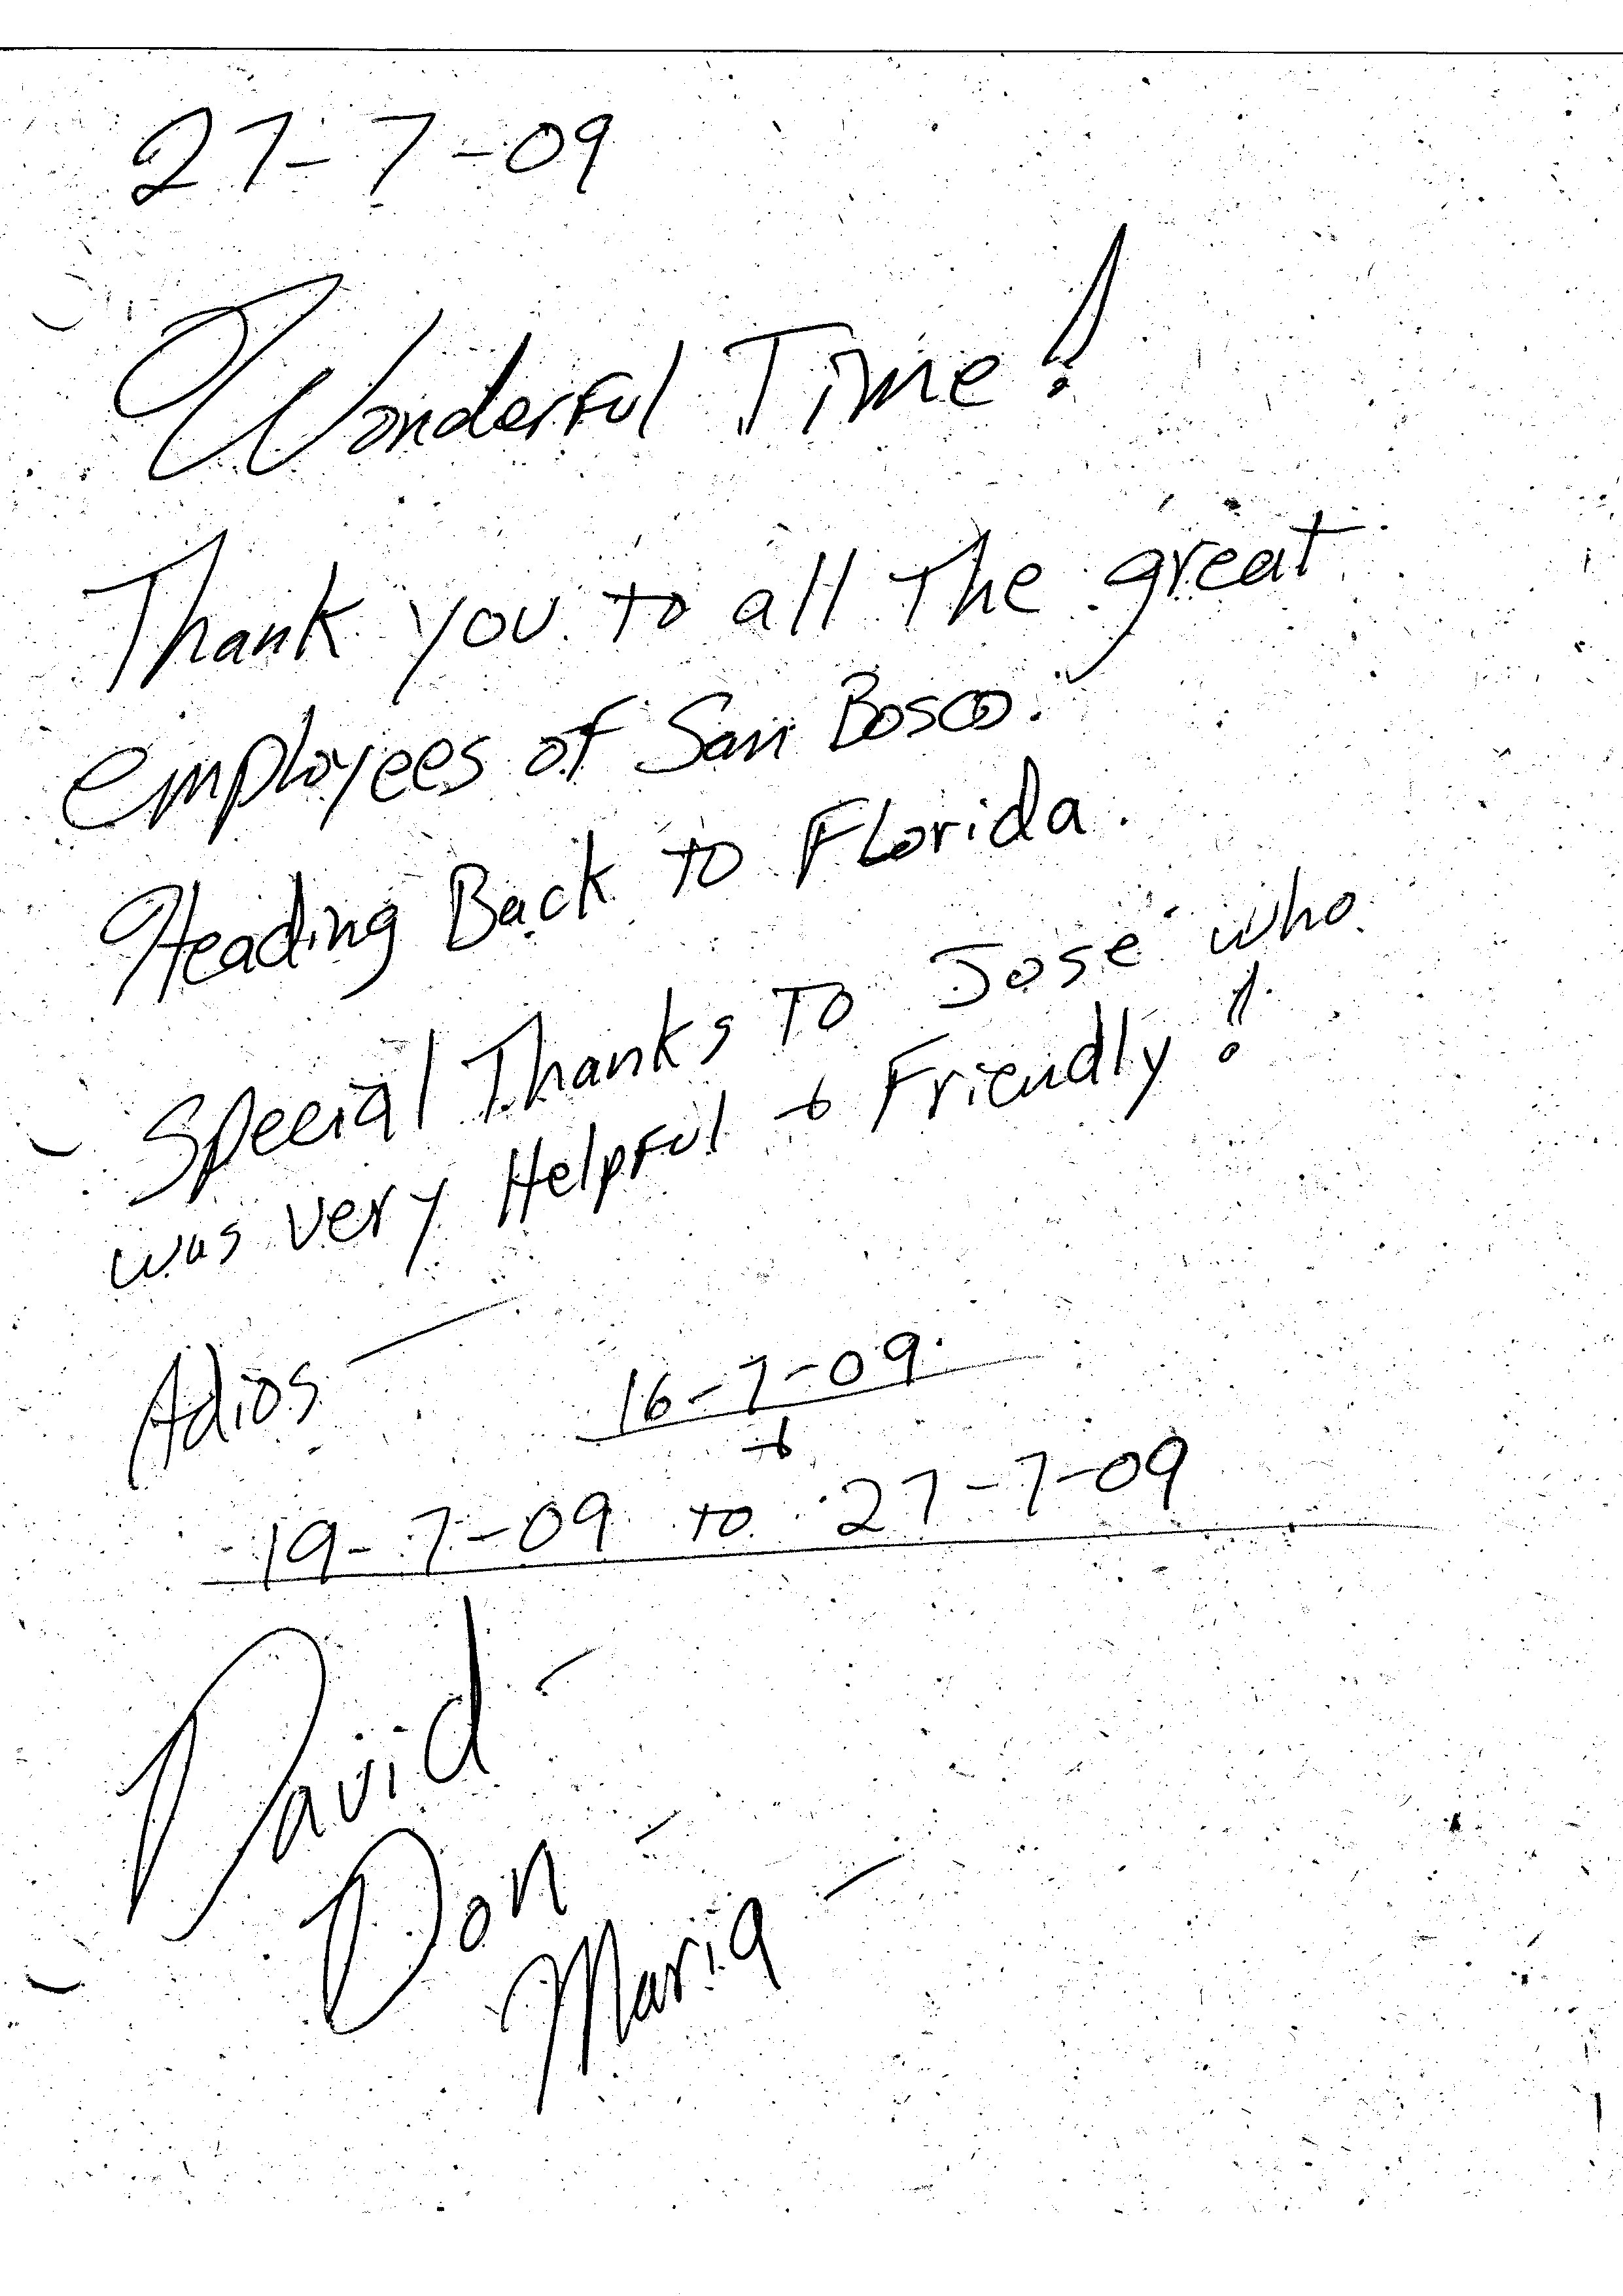 27-7-09
Wonderful Time!
Thank you to all the great
employees of San Bosco.
Heading Back to Florida.
Special Thanks To Jose who
was very Helpful + Friendly!
Adios
16-7-09
+
19-7-09 to 27-7-09
David -
Don -
Maria -